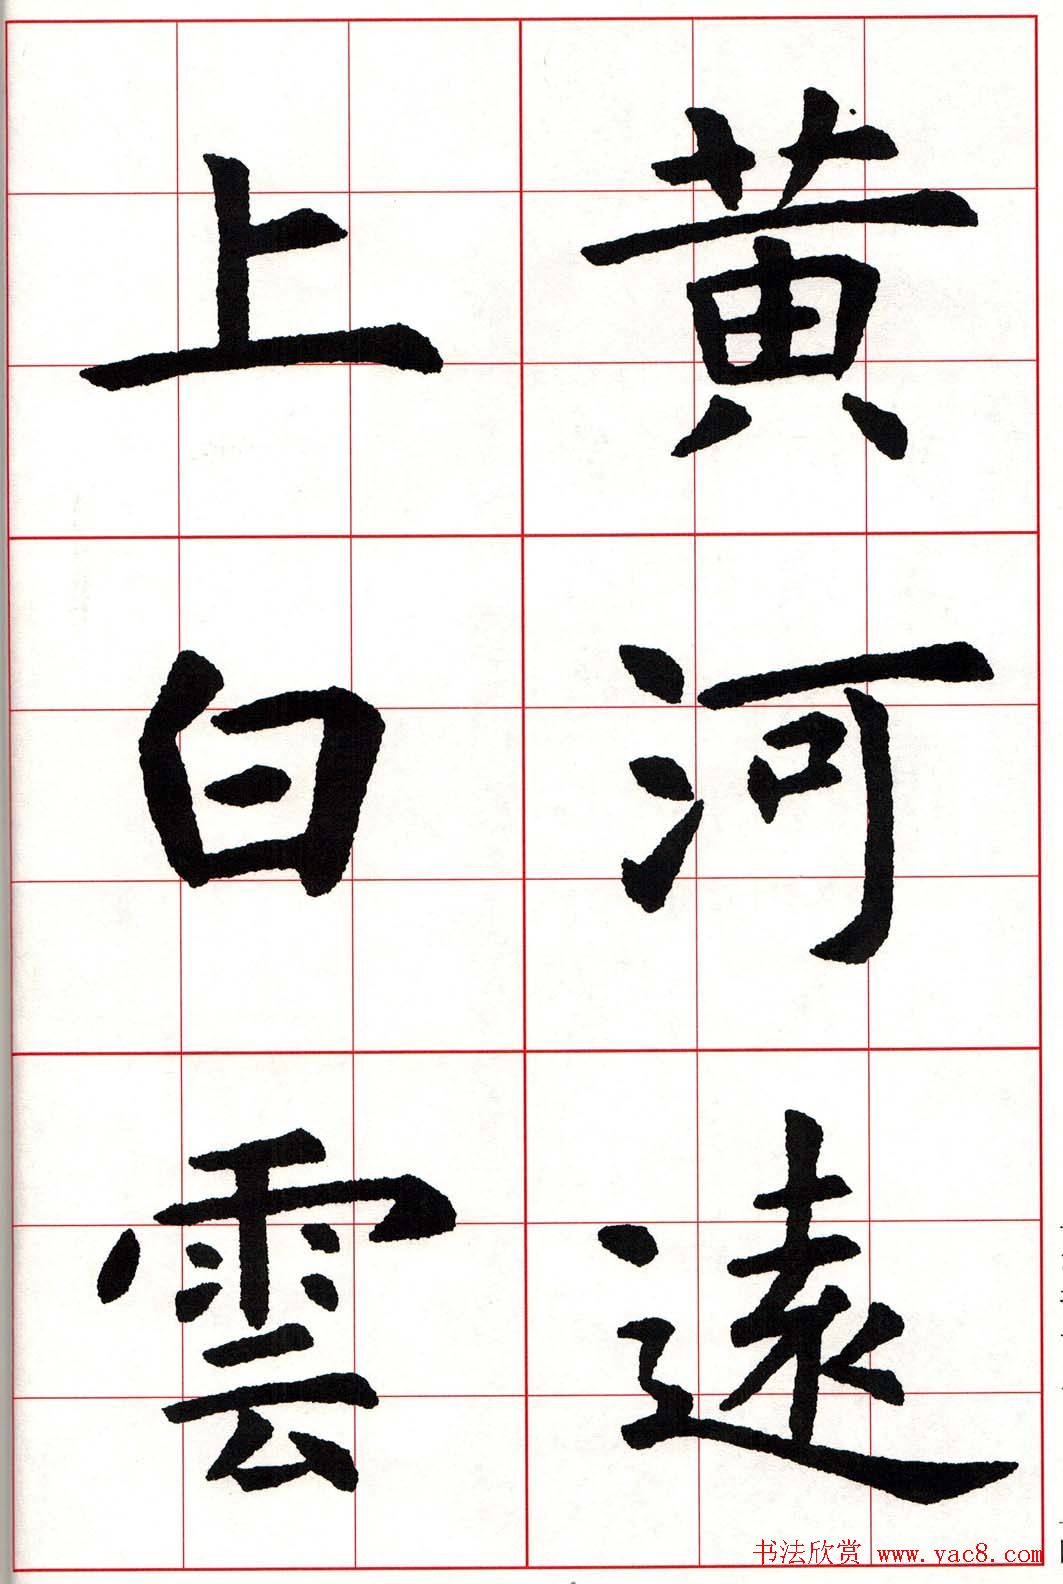 黄河遠
上白雲
书法欣赏 www.yac8.com